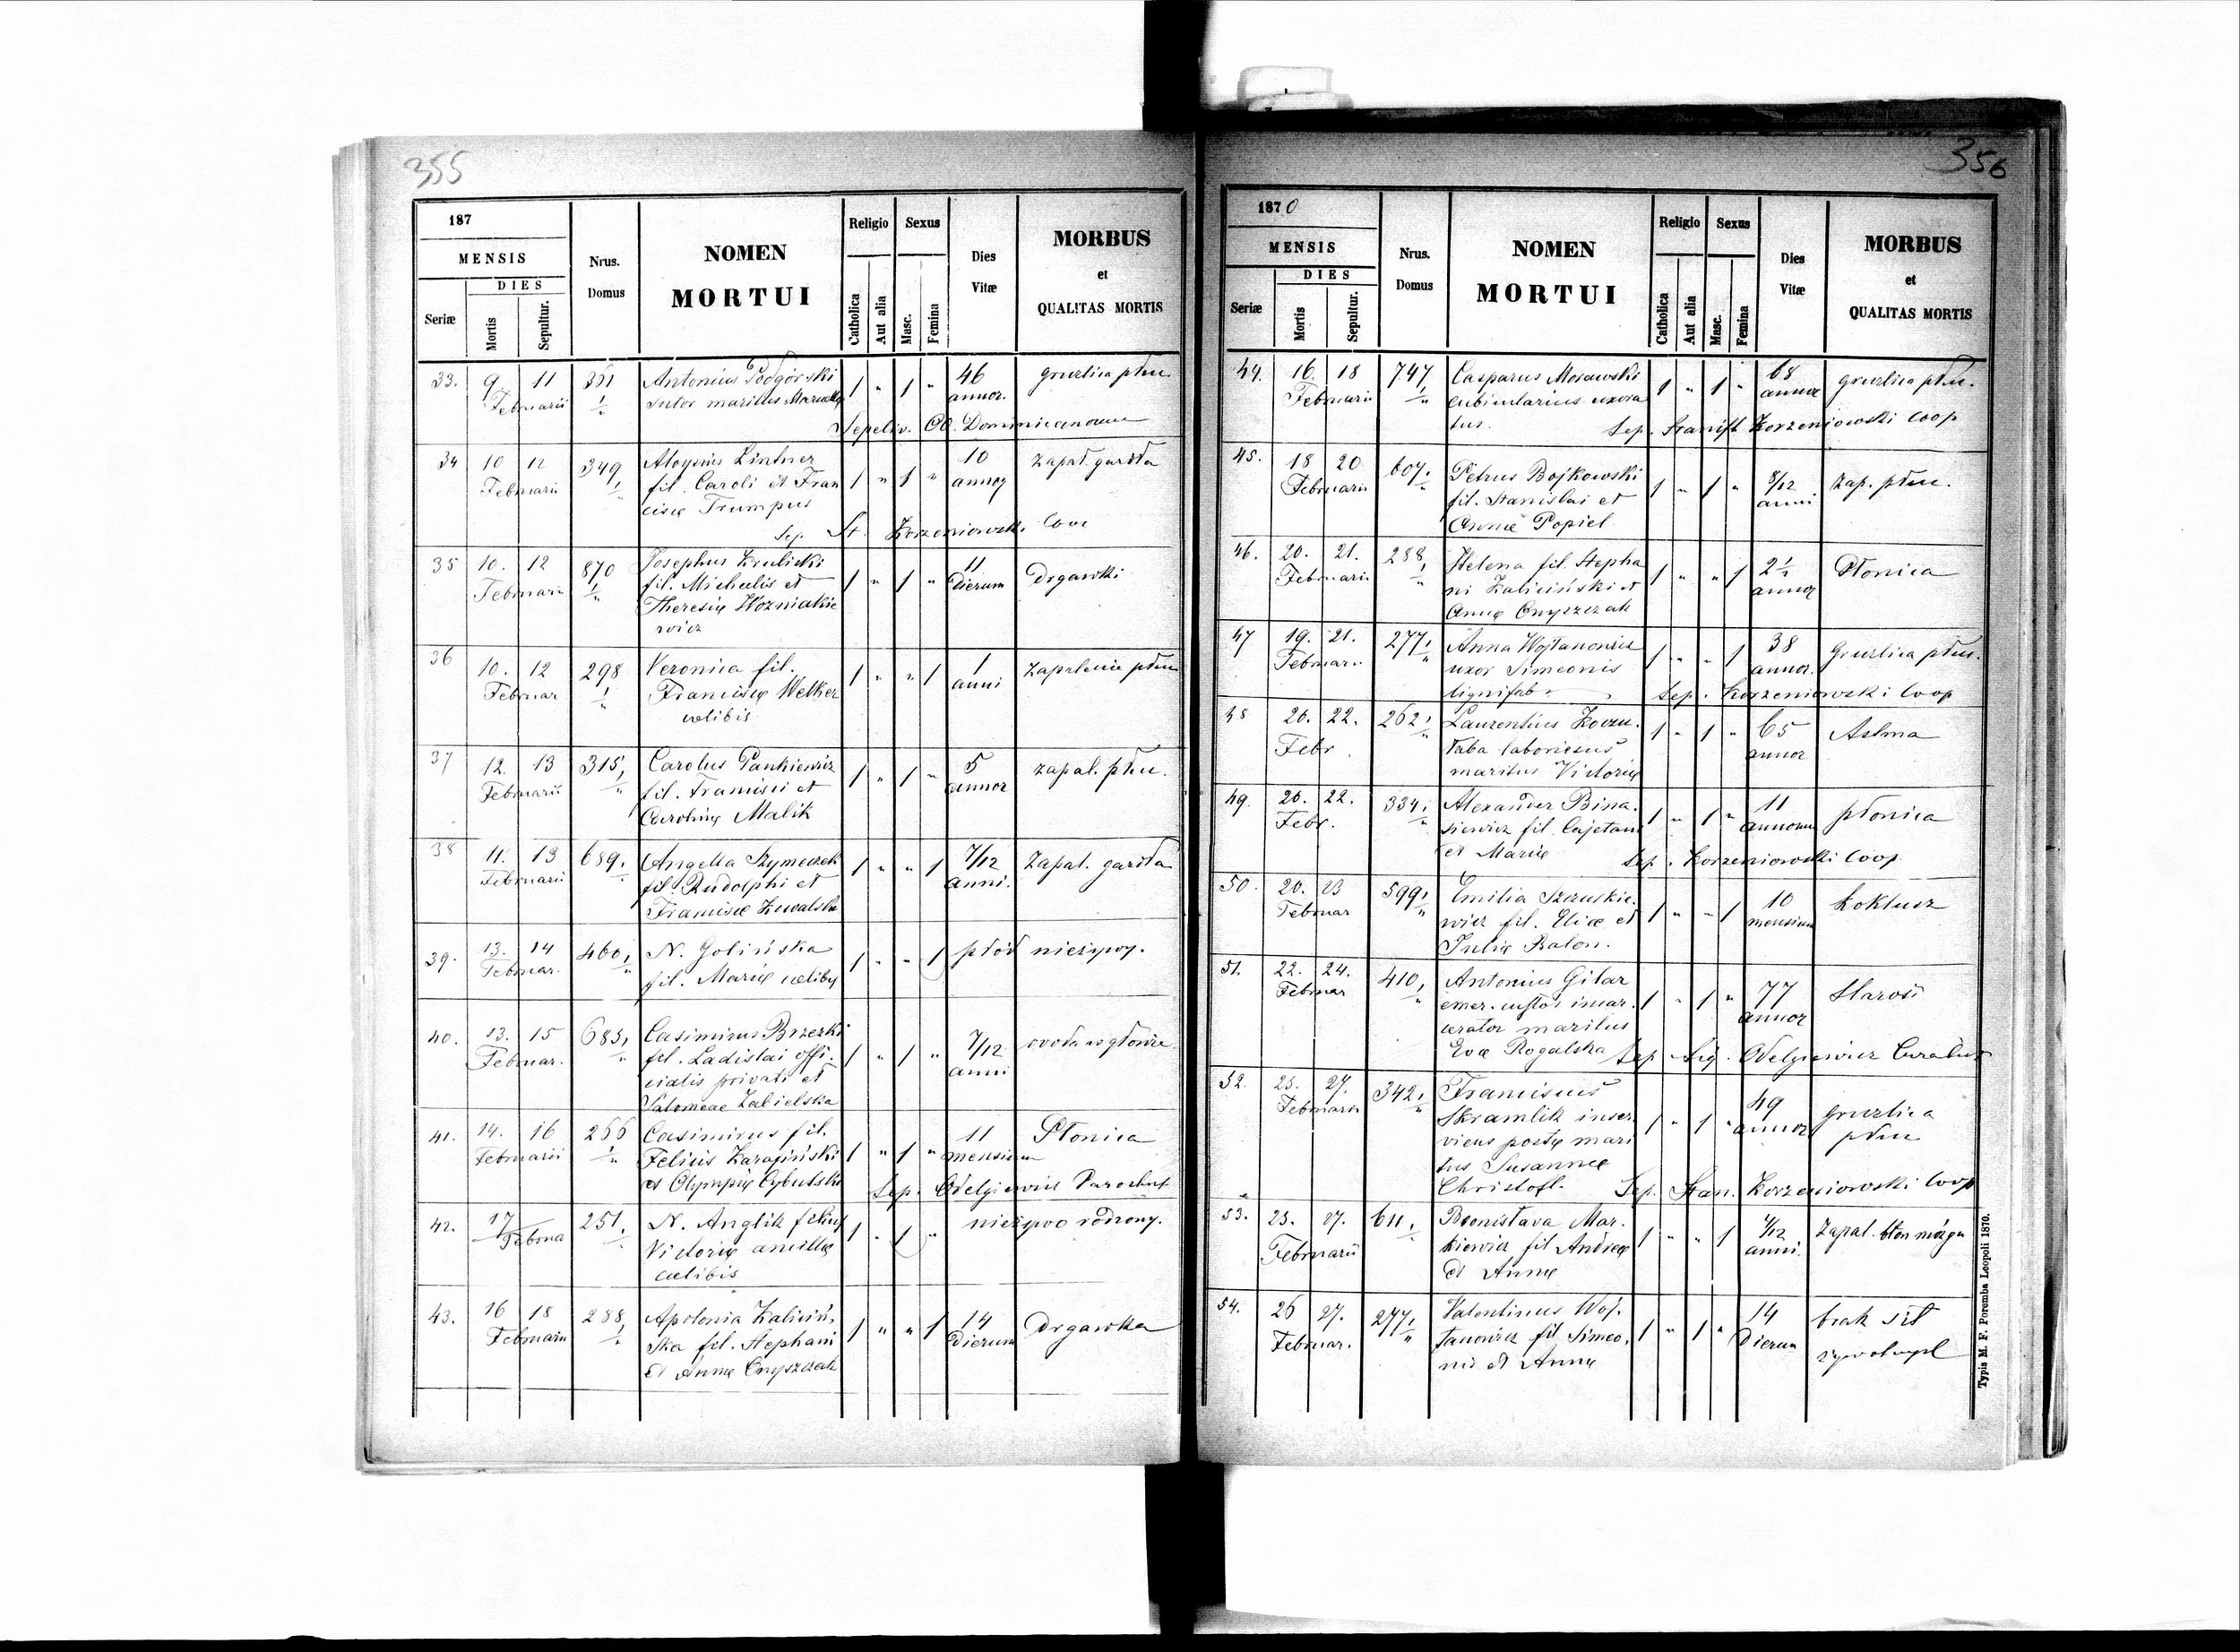 355
187
MENSIS
DIES
Seriæ
Mortis
Sepultur.
Nrus.
Domus
NOMEN
MORTUI
Religio
Catholica
Aut alia
Sexus
Masc.
Femina
Dies
Vitæ
MORBUS
et
QUALITAS MORTIS
33. 9 11 351 Antonius Podgórski 1 " 1 " 46 gruzlica płuc.
Februarii 1 sutor maritus annor.
Sepeliv. Dominicanorum
34 10 12 349 Aloysius Lintner 10 zapal. gardła
Februarii 1 fil. Caroli et Fran 1 " 1 " annor
cisce Trumpus
Sep. St. Korzeniowski Coop
35 10. 12 870 Josephus Krulicki 11 Drgawki
Februarii 1 fil. Michaelis et 1 " 1 " Dierum
Theresię Wozniakie
wicz
36 10. 12 298 Veronica fil. 1 zapalenie płuc
Februar 1 Franciscę Welker 1 " " 1 anni
celibis
37 12. 13 315 Carolus Pankiewicz 5 zapal. płuc.
Februarii fil. Francisci et 1 " 1 " annor
Carolinę Malik
38 11. 13 689. Angella Szymeczek 7/12 Zapal. gardła
Februarii fil. Rudolphi et 1 " " 1 anni.
Franciscę Kowalska
39. 13. 14 460 N. Golińska płód nieżywy.
Februar. fil. Marię celibis 1 " " 1
40. 13. 15 683 Casimirus Brzezki
Februar. fil. Ladislai offi- 1 " 1 " 7/12 woda w głowie
cialis privati et anni
Salomeae Zabielska
41. 14. 16 266 Casimirus fil. 11 Płonica
Februarii 1 Felicis 1 " 1 " mensium
et Olympię Cybulska Sep. Odelgiewicz Parochus
42. 17 251. N. Anglik filius nieżywo rodzony.
Victorię ancillę 1 " 1 "
celibis
43. 16 18 288 Apolonia Kaliciń- 14 Drgawka
Februarii ska fil. Stephani 1 " " 1 Dierum
et Annę Onyszczak
356
1870
MENSIS
DIES
Seriæ
Mortis
Sepultur.
Nrus.
Domus
NOMEN
MORTUI
Religio
Catholica
Aut alia
Sexus
Masc.
Femina
Dies
Vitæ
MORBUS
et
QUALITAS MORTIS
44. 16. 18 747 Casparus Morawski 68 gruzlica płuc.
Februarii cubicularius uxora 1 " 1 " annor
tus. Sep. Korzeniowski Coop
45. 18 20 607. Petrus Bojkowski 8/12 Zap. płuc.
Februarii fil. Stanislai et 1 " 1 " anni
Annae Popiel
46. 20. 21. 288 Helena fil. Stepha 2½ Płonica
Februarii ni Kaliciński et 1 " " 1 annor
Annę Onyszczak
47 19. 21. 277 Anna Wojtanowicz 38 Gruzlica płuc.
Februarii uxor Simeonis 1 " " 1 annor.
lignifab Sep. Korzeniowski Coop
48 20. 22. 262 Laurentius 65 Astma
Febr. laboriosus 1 " 1 " annor
maritus Victorię
49. 20. 22. 334 Alexander Bina- 11 płonica
Febr. siewicz fil. Cajetani 1 " 1 " annorum
et Marię Sep. Korzeniowski Coop
50. 20. 23 599 Emilia Szczuskie- 10 koklusz
Februar wicz fil. Eliae et 1 " " 1 mensium
Julię Balon.
51. 22. 24. 410 Antonius Gilar 77 Starość
Februar emer. custos incar- 1 " 1 " annor
cerator maritus
Evae Rogalska Sep. Odelgiewicz Curatus
52. 25. 27. 342 Franciscus 49 gruzlica
Februarii Skramlik inser 1 " 1 " annor płuc
viens postę mari
tus Susannae
Christofl. Sep. Stan. Korzeniowski Coop
53. 25. 27. 611. Bronisława Mar- Zapal. błon mózgu
Februarii kiewicz fil. Andreę 1 " " 1 anni.
et Annę
54. 26 27. 277 Valentinus Woj- 14 brak sił
Februar. tanowicz fil. Simeo- 1 " 1 " Dierum
nis et Annę
Typis M. F. Poremba Leopoli 1870.